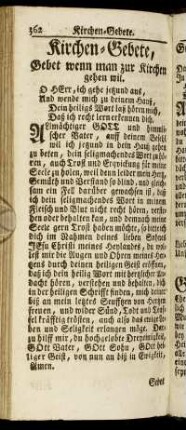 362 Kirchen-Gebete.
Kirchen-Gebete,
Gebet wenn man zur Kirchen
gehen wil.
O HErr, ich gehe jezund aus,
Und wende mich zu deinem Hauß,
Dein heiligs Wort laß hören mich,
Daß ich recht lern erkennen dich.
Allmächtiger GOTT und himmli-
scher Vater, auff deinen Befehl
wil ich jezund in dein Hauß gehen
zu beten, dein seligmachendes Wort zu hö-
ren, auch Trost und Erquickung für meine
Seele zu holen, weil denn leider mein Herz,
Gemüth und Verstand so blind und gleich-
sam ein Fell darüber gewachsen ist, daß
ich dein seligmachendes Wort in meinem
Fleisch und Blut nicht recht hören, verste-
hen oder behalten kan, und dennoch meine
Seele gern Trost haben möchte, so bitte ich
dich im Nahmen deines lieben Sohns
JEsu Christi meines Heylandes, du wol-
lest mir die Augen und Ohren meines Her-
zens durch deinen heiligen Geist eröffnen,
daß ich dein heilig Wort mit herzlicher An-
dacht hören, verstehen und behalten, dich
in der heiligen Schrifft finden, mich deiner
biß an mein letztes Seuffzen von Herzen
freuen, und wider Sünd, Todt und Teuf-
fel kräfftig trösten, auch also das ewige Le-
ben und Seligkeit erlangen möge. Da-
zu hilff mir, du hochgelobte Dreyeinigkeit,
GOtt Vater, GOtt Sohn, GOtt hei-
liger Geist, von nun an biß in Ewigkeit,
Amen.
Gebet